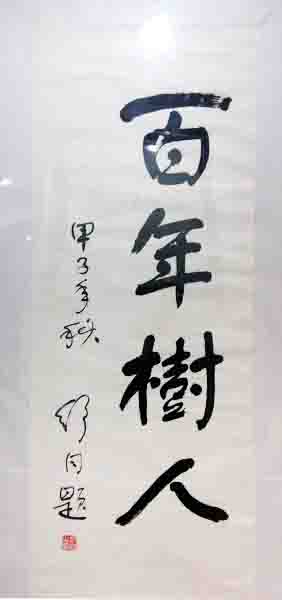 百年樹人
甲子年秋
舒同題